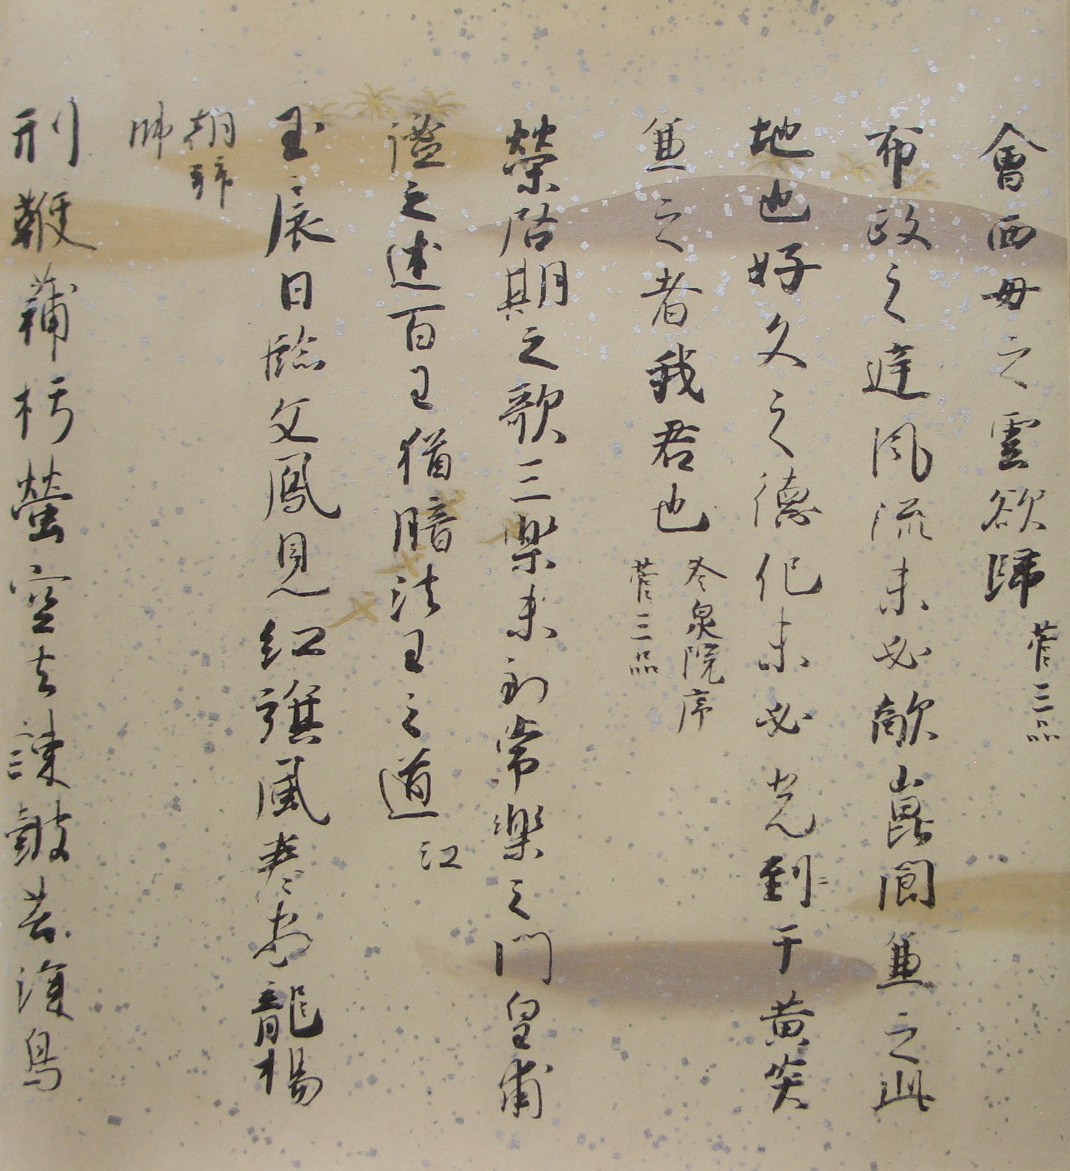 會西母之雲欲歸 菅三品
布政之庭風流未必敵崑閬兼之此
地也好文之德化未必光到于黄炎
兼之者我君也 冷泉院序
菅三品
榮啓期之歌三樂未到常樂之門皇甫
謐之述百王猶暗法王之道 江
玉扆日臨文鳳見紅旗風巻畫龍揚
朝拜
帥
刑鞭蒲朽螢空去諫鼓苔深鳥